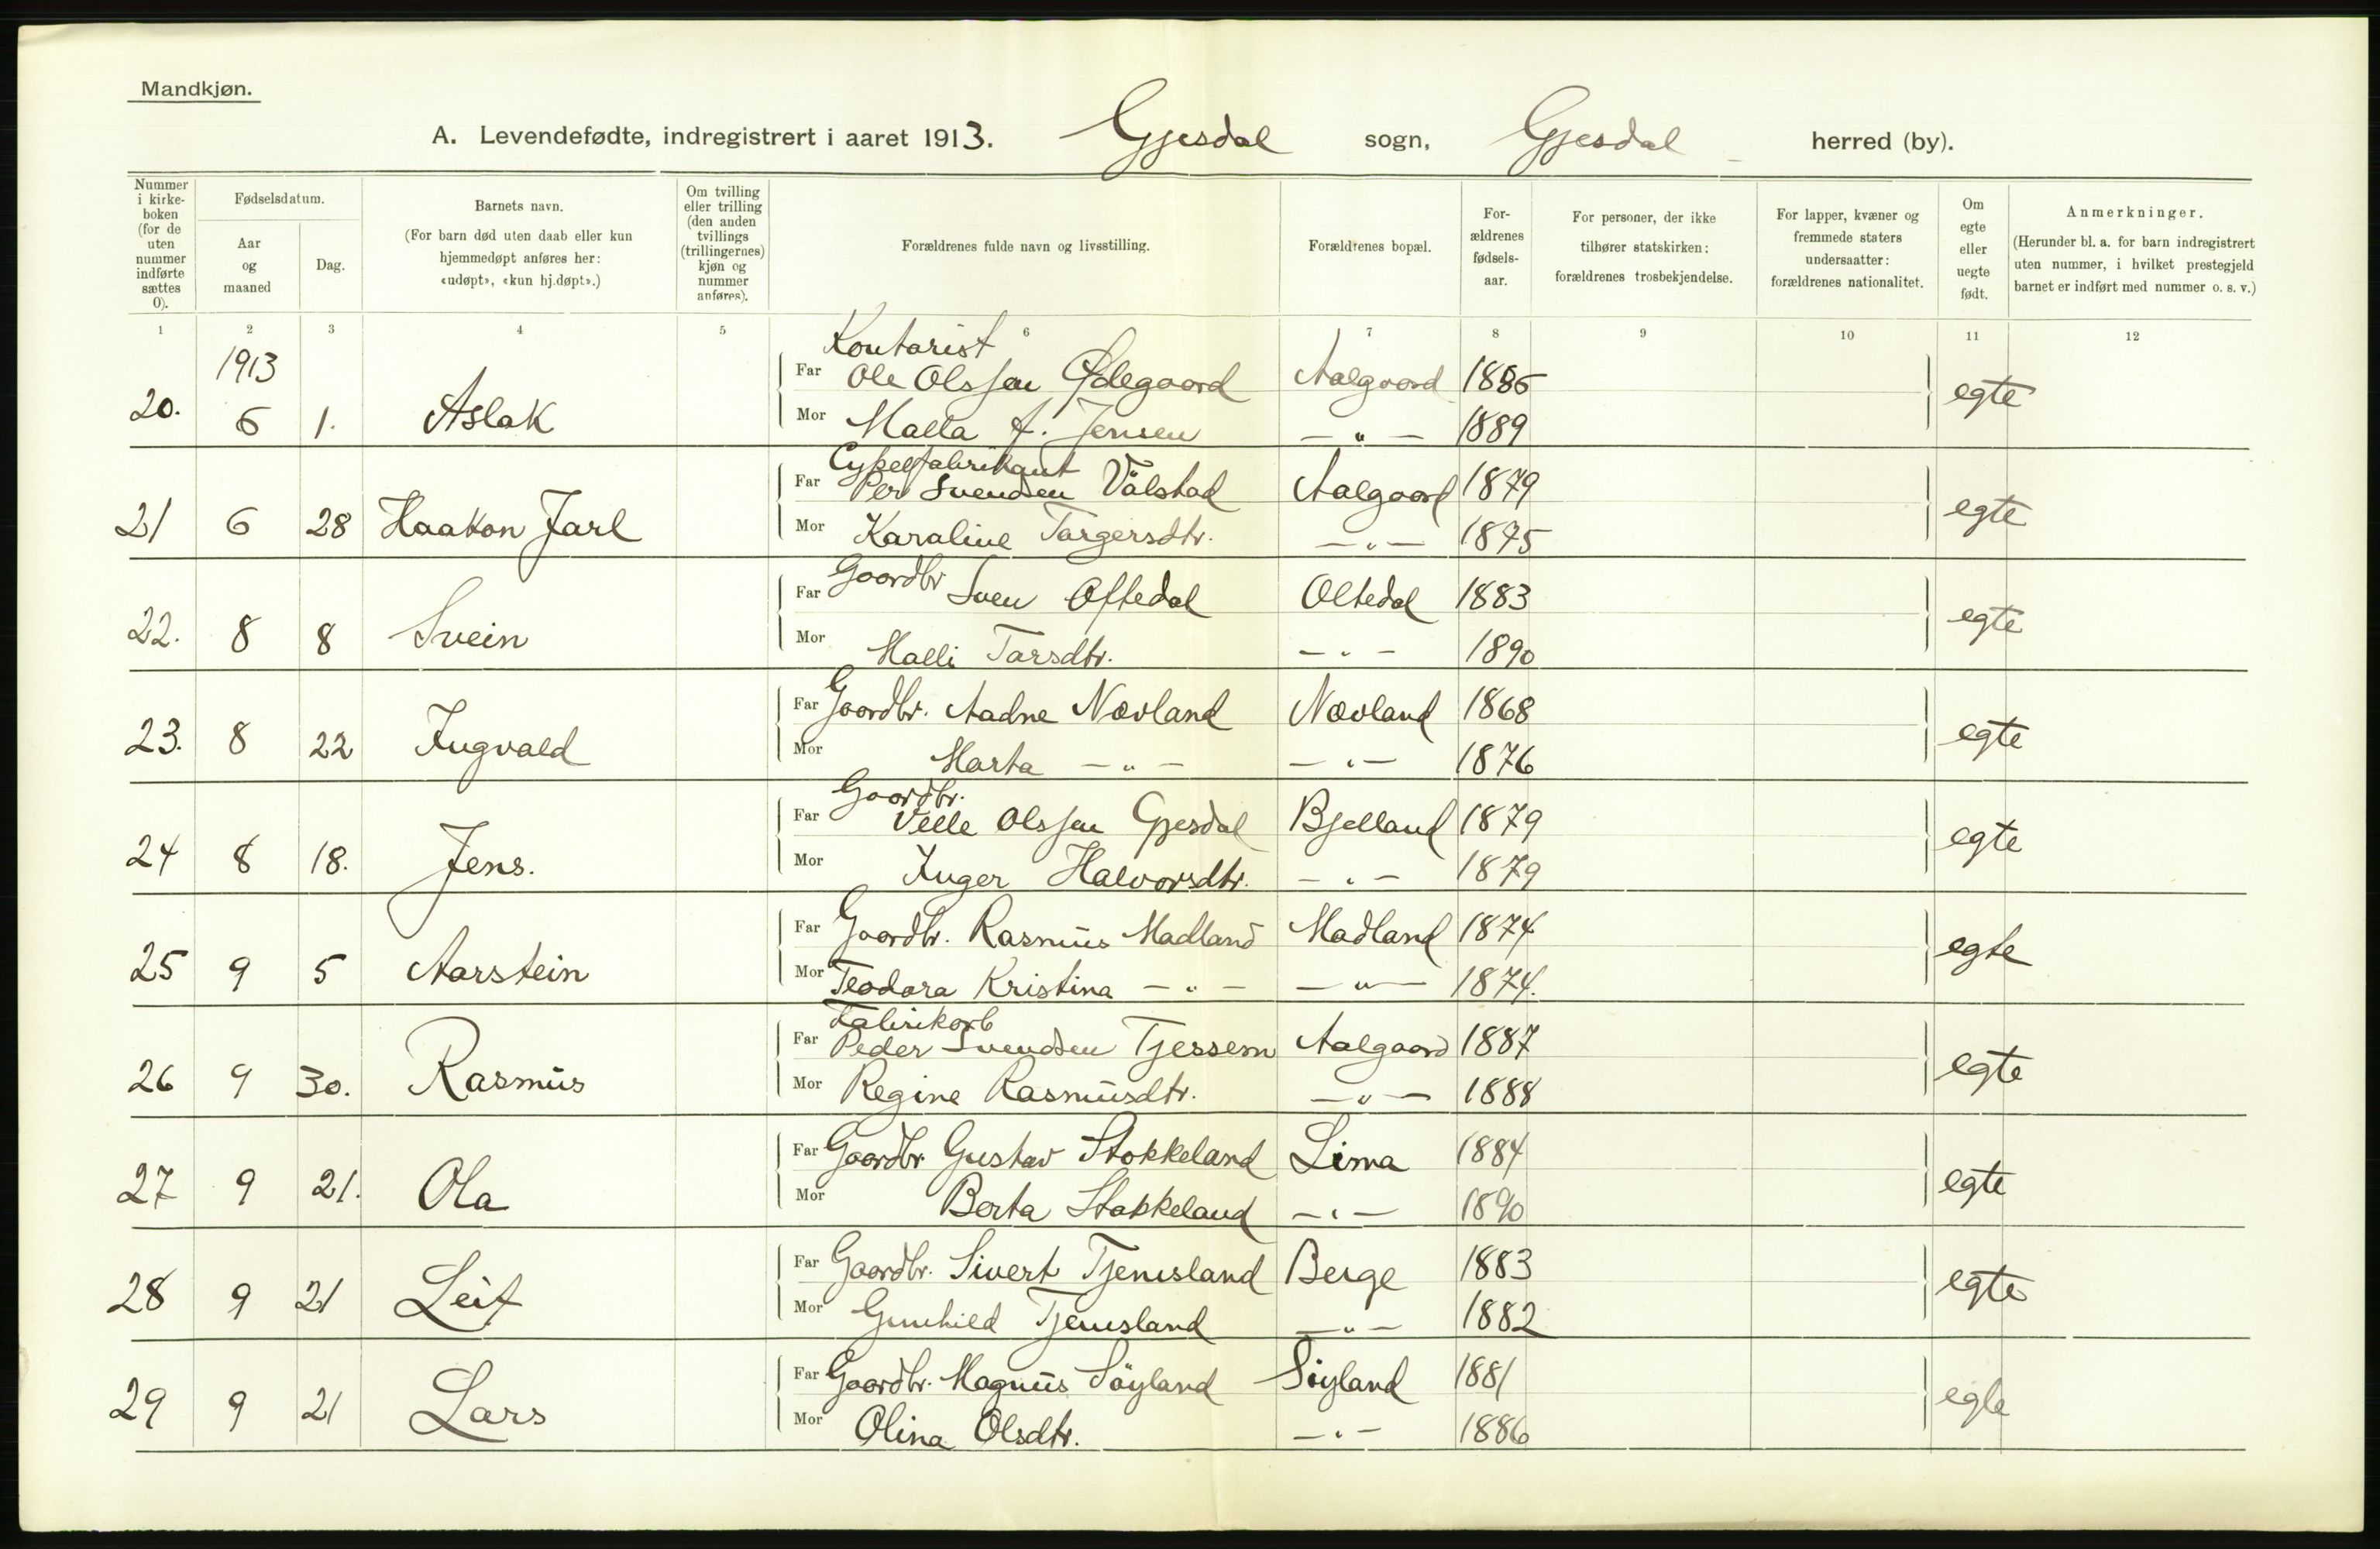 Mandkjøn.
A. Levendefødte, indregistrert i aaret 1913. Gjesdal sogn, Gjesdal herred (by).
Nummer i kirke-boken (for de uten nummer indførte sættes 0).
Fødselsdatum.
Aar og maaned
Dag.
Barnets navn.
(For barn død uten daab eller kun hjemmedøpt anføres her: «udøpt», «kun hj.døpt».)
Om tvilling eller trilling (den anden tvillings (trillingernes) kjøn og nummer anføres).
Forældrenes fulde navn og livsstilling.
Forældrenes bopæl.
For-ældrenes fødsels-aar.
For personer, der ikke tilhører statskirken: forældrenes trosbekjendelse.
For lapper, kvæner og fremmede staters undersaatter: forældrenes nationalitet.
Om egte eller uegte født.
Anmerkninger.
(Herunder bl. a. for barn indregistrert uten nummer, i hvilket prestegjeld barnet er indført med nummer o. s. v.)
1 2 3 4 5 6 7 8 9 10 11 12
1913
Kontorist
20. 6 1. Aslak Far Ole Olssen Ødegaard Aalgaard 1886 egte
Mor Malla A. Jensen — " — 1889
Cykelfabrikant
21 6 28 Haakon Jarl Far Per Svendsen Vålstad Aalgaard 1879 egte
Mor Karaline Torgersdtr. — " — 1875
22. 8 8 Svein Far Gaardbr Sven Oftedal Oltedal 1883 egte
Mor Malli Torsdtr. — " — 1890
23. 8 22 Ingvald Far Gaardbr. Aadne Nævland Nævland 1868 egte
Mor Marta — " — — " — 1876
Gaardbr.
24 8 18. Jens. Far Velle Olssen Gjesdal Bjelland 1879 egte
Mor Inger Halvorsdtr. — " — 1879
25 9 5 Aarstein Far Gaardbr. Rasmus Madland Madland 1874 egte
Mor Teodora Kristina — " — — " — 1874.
Fabrikarb
26 9 30. Rasmus Far Peder Svendsen Tjessem Aalgaard 1887 egte
Mor Regine Rasmusdtr. — " — 1888
27 9 21. Ola Far Gaardbr Gustav Stokkeland Lima 1884 egte
Mor Berta Stokkeland — " — 1890
28 9 21 Leif Far Gaardbr. Sivert Tjemsland Berge 1883 egte
Mor Gunhild Tjemsland — " — 1882
29 9 21 Lars Far Gaardbr. Magnus Söyland Söyland 1881 egte
Mor Olina Olsdtr. — " — 1886